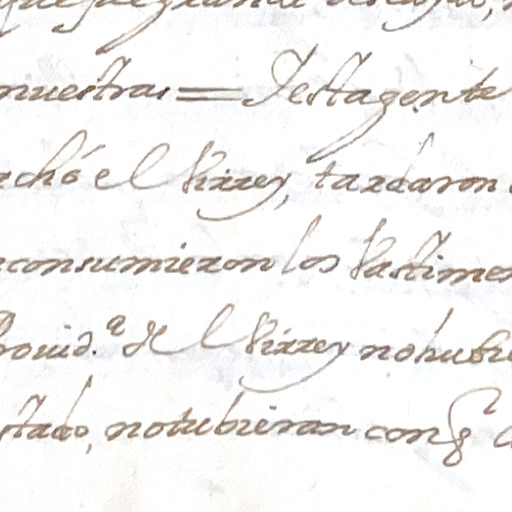 nuestras = Iesta gente
chó el Virrey, tardaron
consumieron los Vastimen
Provid.ª de el Virrey no hubie
stado, no tubieran con q̃